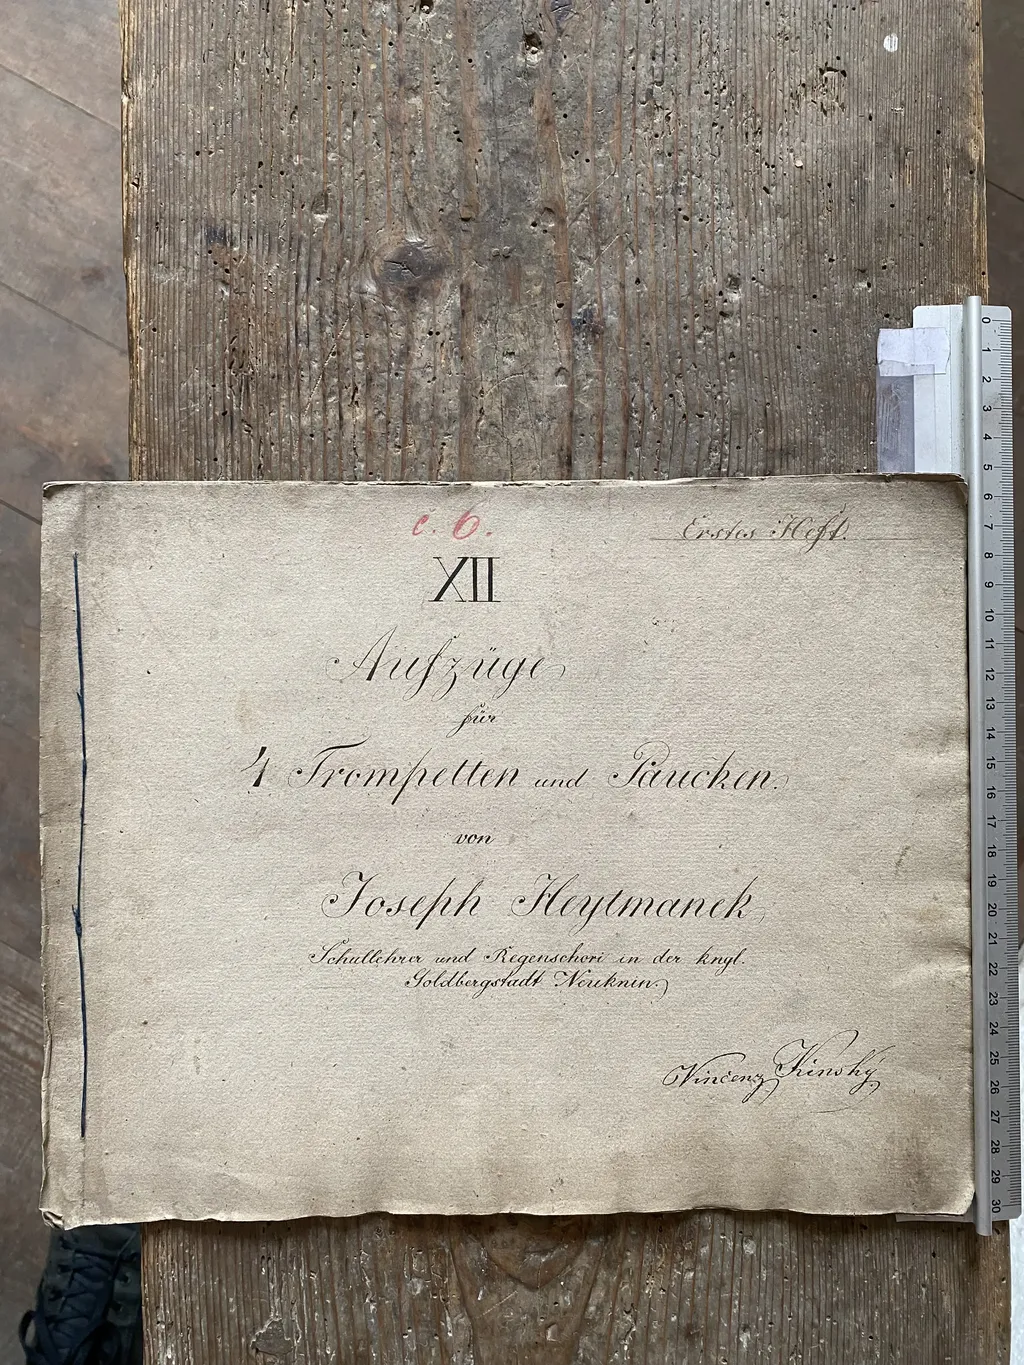 c. 6.
Erstes Heft.
XII
Aufzüge
für
4 Trompetten und Paucken.
von
Joseph Heytmanek
Schullehrer und Regenschori in der kngl.
Goldbergstadt Neuknin.
Vincenz Kinský
0
1
2
3
4
5
6
7
8
9
10
11
12
13
14
15
16
17
18
19
20
21
22
23
24
25
26
27
28
29
30